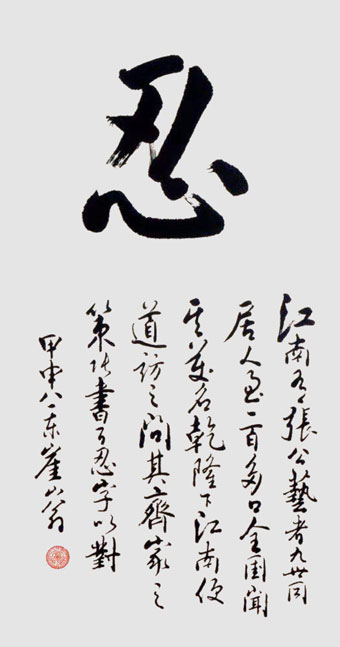 忍
江南有張公藝者九世同
居人至二百多口全国聞
其美名乾隆下江南便
道訪之問其齊家之
策張書百忍字以對
甲申八一東崖翁